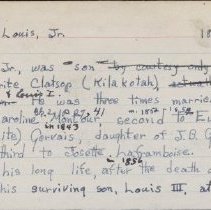 Louis, Jr. 18
Jr., was son by courtesy only
rite Clatsop (Kilakotah), actual
& Louis I.
He was three times marrie
8/2/ 41 m. 1852 1852
aroline Montour, second to Eu
in 1843
ite) Gervais, daughter of J.B. G
third to Josette Laframboise.
1856
his long life, after the death o
his surviving son, Louis III, at